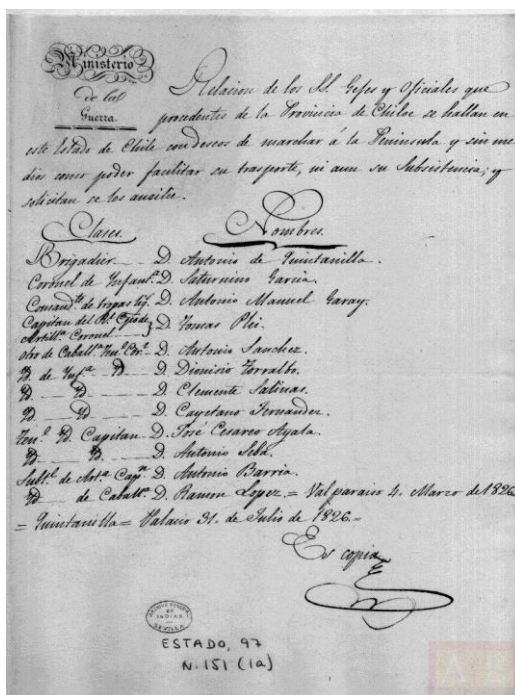 Ministerio
de la
Guerra.
Relacion de los SS. Gefes y Oficiales que
procedentes de la Provincia de Chiloe se hallan en
este Estado de Chile con deseos de marchar á la Peninsula y sin me
dios como poder facilitar su trasporte, ni aun su Subsistencia; y
solicitan se les ausilie.
Clases. Nombres.
Brigadier D. Antonio de Quintanilla.
Coronel de Infant.ª D. Saturnino Garcia.
Comand.te de tropas lig.s D. Antonio Manuel Garay.
Capitan del R.l C. de
Artill.ª Coronel D. Tomas Plei.
otro de Caball.ª Ten.e Cor.l D. Antonio Sanchez.
Yd. de Ynf.ª Yd. D. Dionisio Torralbo.
Yd. Yd. D. Clemente Salinas.
Yd. Yd. D. Cayetano Fernandez.
Ten.e Yd. Capitan D. José Cesareo Ayala.
Yd. Yd. D. Antonio Seba.
Subt.e de Art.ª Cap.n D. Antonio Barria.
Yd. de Caball.ª D. Ramon Lopez. = Valparaiso 4. Marzo de 1826
= Quintanilla = Palacio 31. de Julio de 1826.=
Es copia
ARCHIVO GENERAL
DE
INDIAS
SEVILLA
ESTADO, 97
N. 151 (1a)